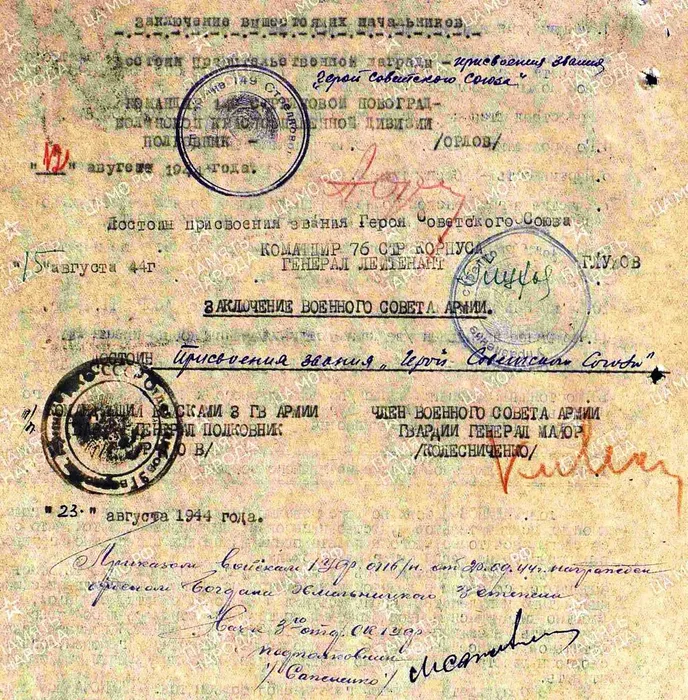 ЗАКЛЮЧЕНИЕ ВЫШЕСТОЯЩИХ НАЧАЛЬНИКОВ
достоин правительственной награды - присвоения звания
"Герой Советского Союза"
КОМАНДИР 149 СТРЕЛКОВОЙ НОВОГРАД-
ВОЛЫНСКОЙ КРАСНОЗНАМЕННОЙ ДИВИЗИИ
ПОЛКОВНИК - /ОРЛОВ/
"12" августа 1944 года.
Достоин присвоения звания Героя Советского Союза
КОМАНДИР 76 СТР КОРПУСА
ГЕНЕРАЛ ЛЕЙТЕНАНТ ГЛУХОВ
"15" августа 44г
ЗАКЛЮЧЕНИЕ ВОЕННОГО СОВЕТА АРМИИ.
достоин Присвоения звания "Герой Советского Союза"
ВОЙСКАМИ 3 ГВ АРМИИ ЧЛЕН ВОЕННОГО СОВЕТА АРМИИ
ГЕНЕРАЛ ПОЛКОВНИК ГВАРДИИ ГЕНЕРАЛ МАЙОР
/КОЛЕСНИЧЕНКО/
"23." августа 1944 года.
Приказом войскам 1 УФ от 44г. награжден
орденом Богдана Хмельницкого 3 степени
Нач. 3го отд. ОК 1 Уфр
подполковник
/Сапенко/